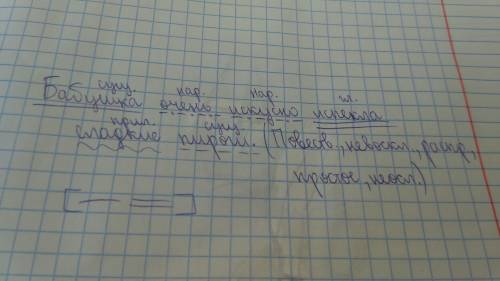 сущ. нар. нар. гл.
Бабушка очень искусно испекла
прил. сущ.
сладкие пироги. (Повеств., невоскл., распр.,
простое, неосл.)